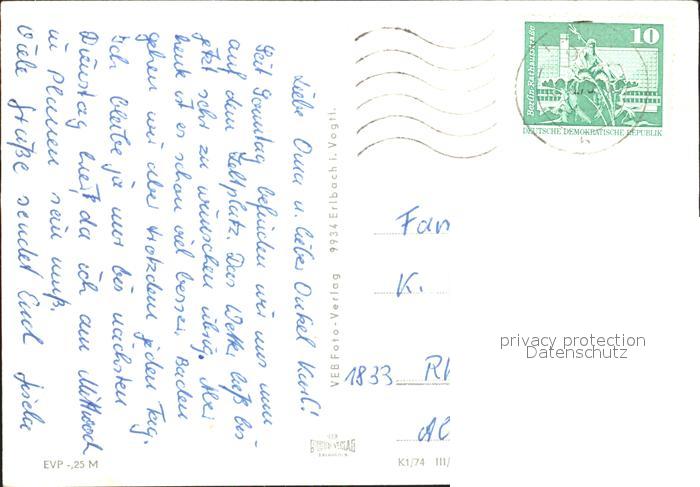 Liebe Oma u. lieber Onkel Karl!
Seit Sonntag befinden wir uns nun
auf dem Zeltplatz. Das Wetter ließ bis
jetzt sehr zu wünschen übrig. Aber
heute ist es schon viel besser. Baden
gehen wir aber trotzdem jeden Tag.
Ich bleibe ja nur bis nächsten
Dienstag hier, da ich am Mittwoch
in Plauen sein muß.
Viele Grüße sendet Euch Gisela
EVP -,25 M
VEB Foto-Verlag 9934 Erlbach i. Vogtl.
K1/74 III/
10
Berlin, Rathausstraße
DEUTSCHE DEMOKRATISCHE REPUBLIK
Fam
K.
1833
privacy protection
Datenschutz